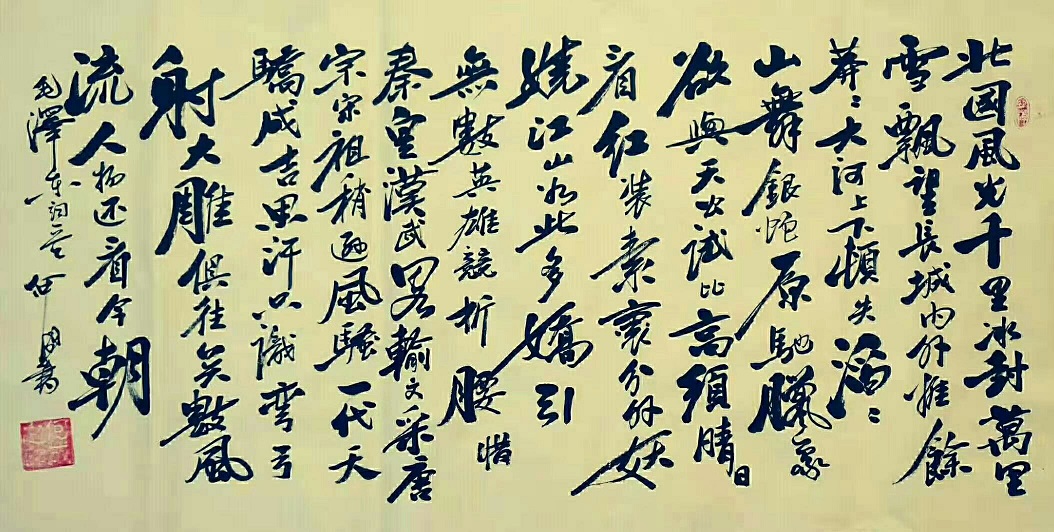 北國風光千里冰封萬里
雪飄望長城內外惟餘
莽〻大河上下頓失滔〻
山舞銀蛇原馳臘象
欲與天公試比高須晴日
看紅裝素裹分外妖
嬈江山如此多嬌引
無數英雄競折腰惜
秦皇漢武畧輸文采唐
宗宋祖稍遜風騷一代天
驕成吉思汗只識彎弓
射大雕俱往矣數風
流人物还看今朝
毛澤東詞